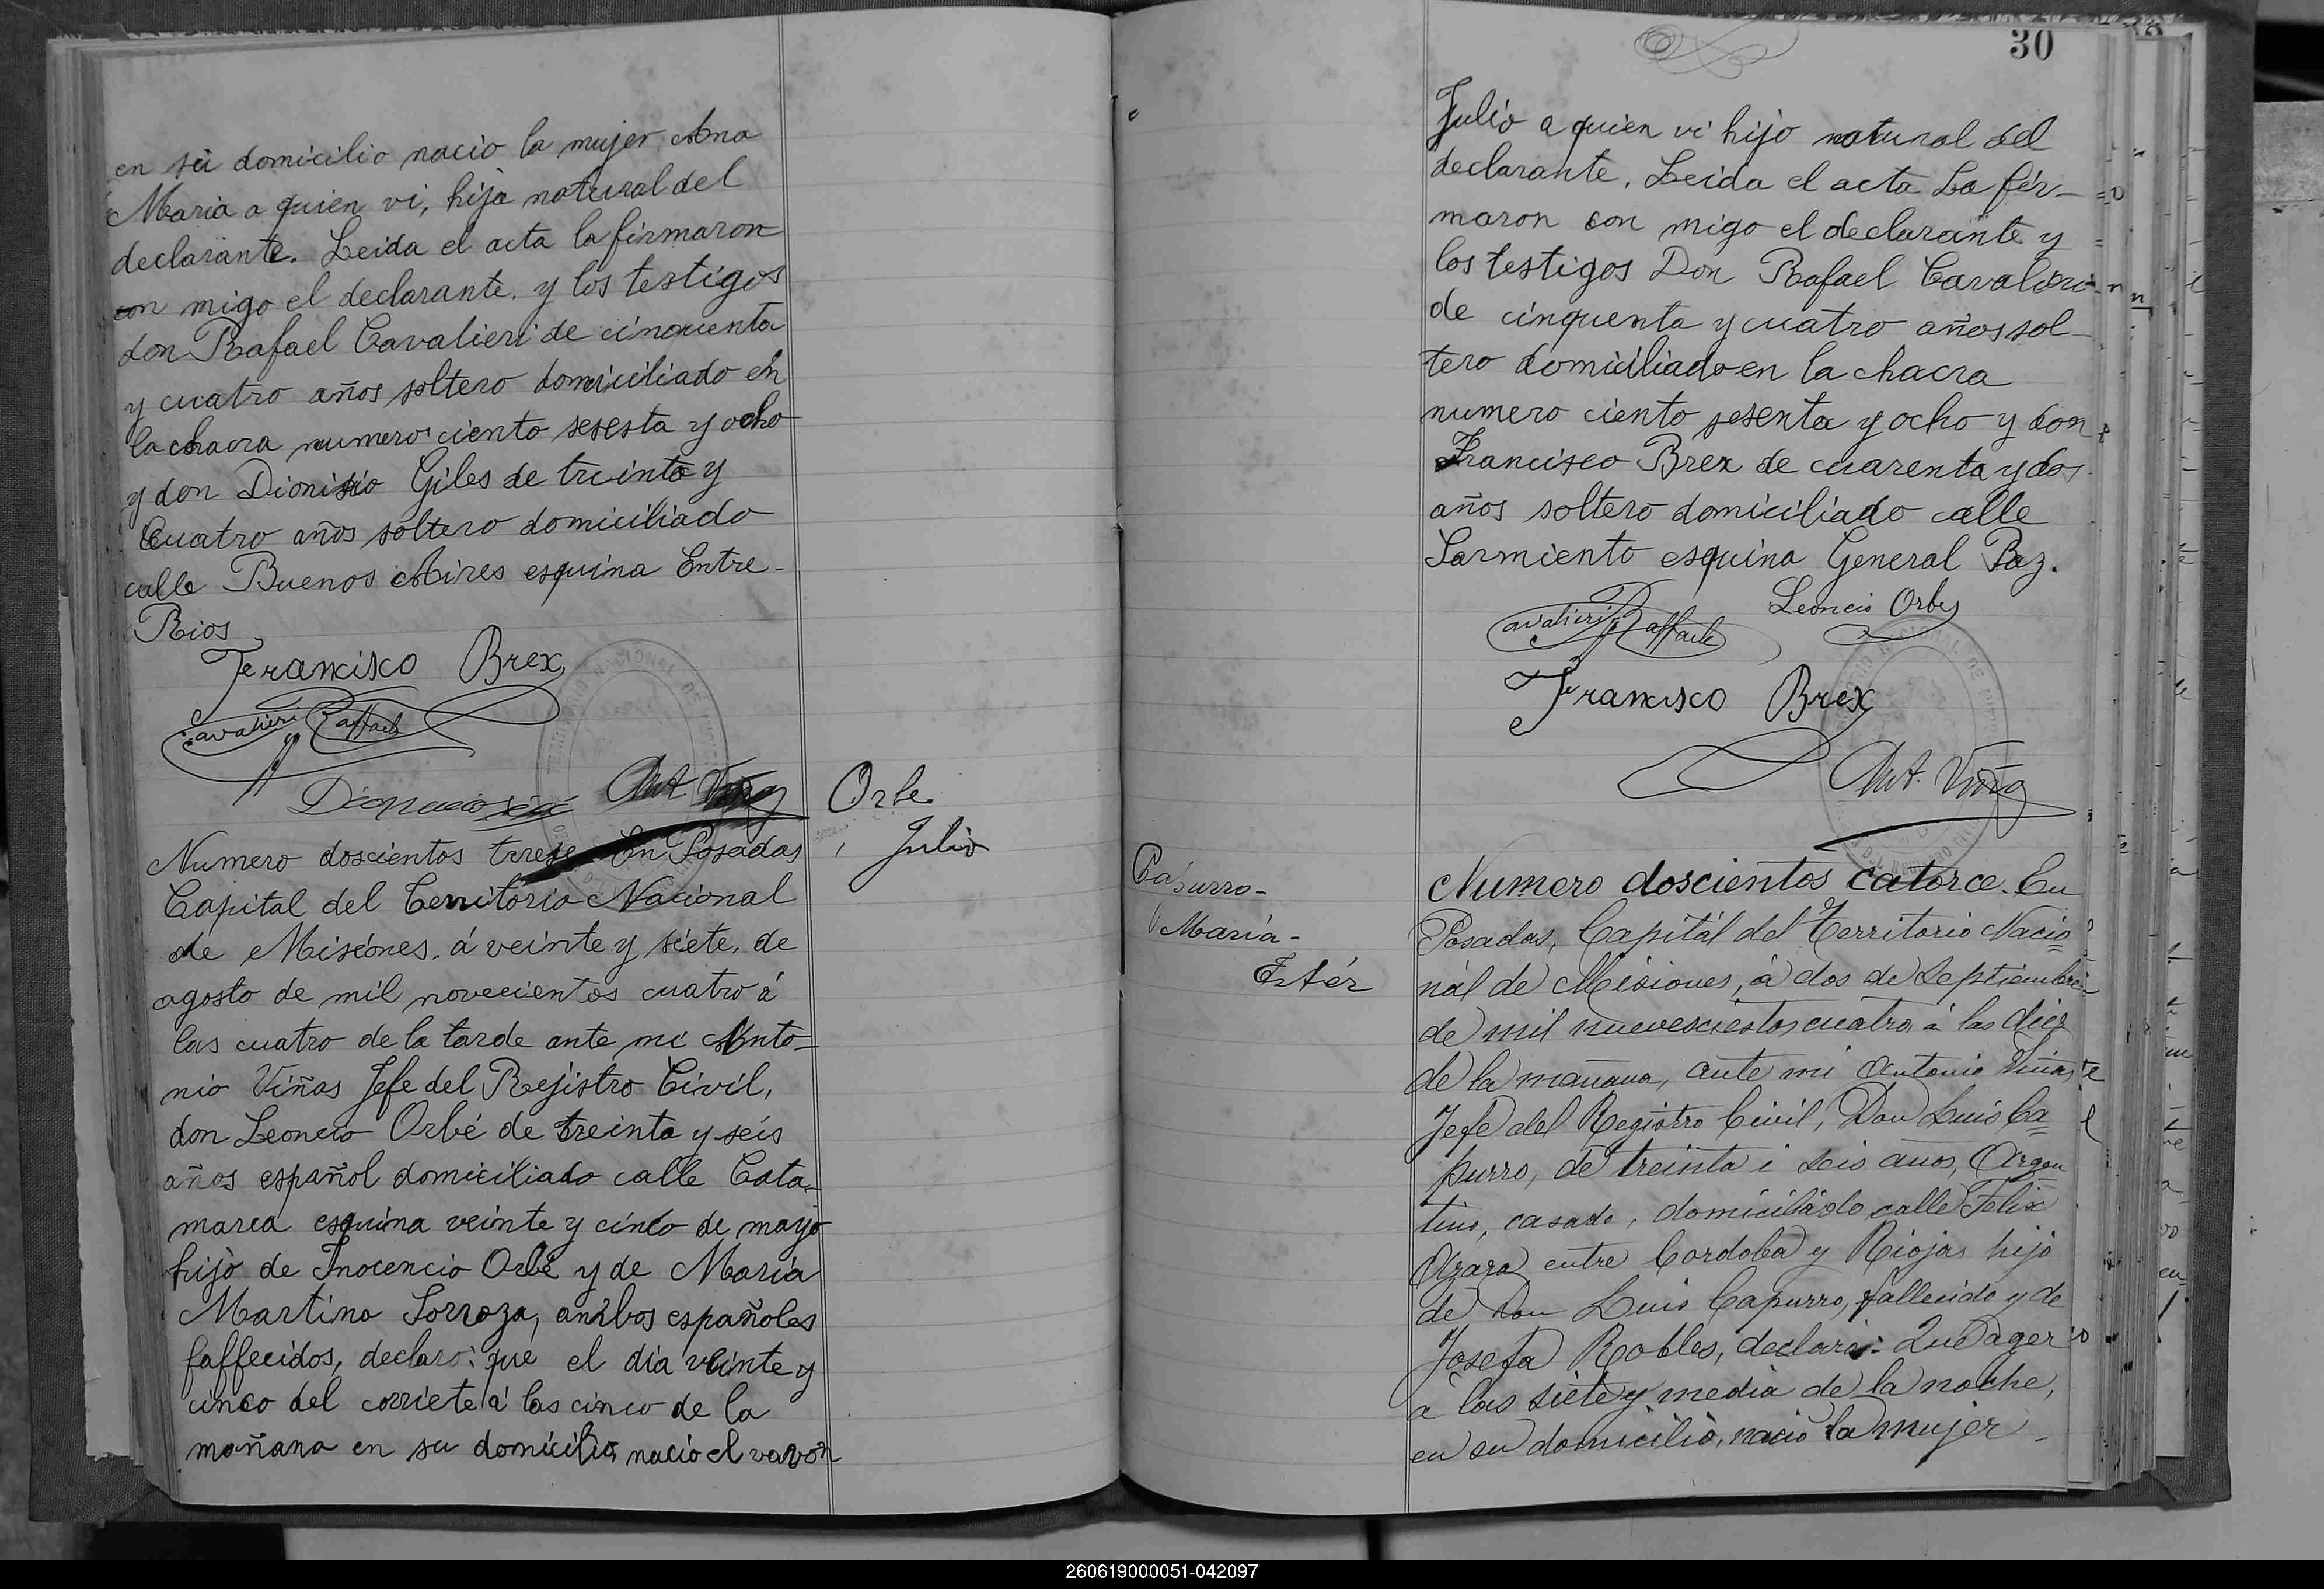 en su domicilio nacio la mujer Ana
Maria a quien vi, hija natural del
declarante. Leida el acta la firmaron
con migo el declarante. y los testigos
don Rafael Cavalieri de cinquenta
y cuatro años soltero domiciliado en
la chacra numero ciento sesesta y ocho
y don Dionisio Giles de treinta y
cuatro años soltero domiciliado
calle Buenos Aires esquina Entre-
Rios
Francisco Brex
Cavalieri Raffaele
Ant. Viñas
Orbe
Julio
Numero doscientos trese En Posadas
Capital del Territorio Nacional
de Misiones, á veinte y siete, de
agosto de mil novecientos cuatro á
las cuatro de la tarde ante mi Anto-
nio Viñas Jefe del Rejistro Civil,
don Leoncio Orbé de treinta y seis
años español domiciliado calle Cata-
marca esquina veinte y cinco de mayo
hijo de Inocencio Orbé y de Maria
Martina Lorroza, ambos españoles
faffecidos, declaro: que el dia veinte y
cinco del corriete á las cinco de la
mañana en su domicilio, nacio el varon
30
Julio a quien vi hijo natural del
declarante. Leida el acta La fir-
maron con migo el declarante y
los testigos Don Rafael Cavalieri
de cinquenta y cuatro años sol-
tero domiciliado en la chacra
numero ciento sesenta y ocho y don
Francisco Brex de cuarenta y dos
años soltero domiciliado calle
Sarmiento esquina General Paz.
Leoncio Orbe
Cavalieri Raffaele
Francisco Brex
Ant. Viñas
Capurro-
Maria-
Estér
Numero doscientos catorce. En
Posadas, Capitál del Territorio Nacio=
nál de Misiones, á dos de Septiembre
de mil nuevescientos cuatro á las diez
de la mañana, ante mi Antonio Viñas
Jefe del Registro Civil, Don Luis Ca=
purro, de treinta i seis años, Argen
tino, casado, domiciliádo calle Felix
Azara entre Cordoba y Rioja, hijo
de Don Luis Capurro, fallecido y de
Josefa Robles, declaró: Que ayer
á las siete y media de la noche,
en su domicilio, nació la mujer-
260619000051-042097